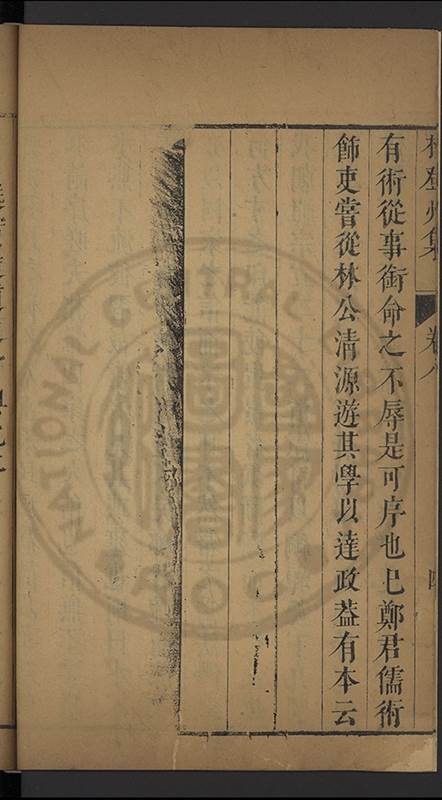 林登州集 卷八 四
有術從事銜命之不辱是可序也已鄭君儒術
飾吏嘗從林公清源遊其學以達政葢有本云